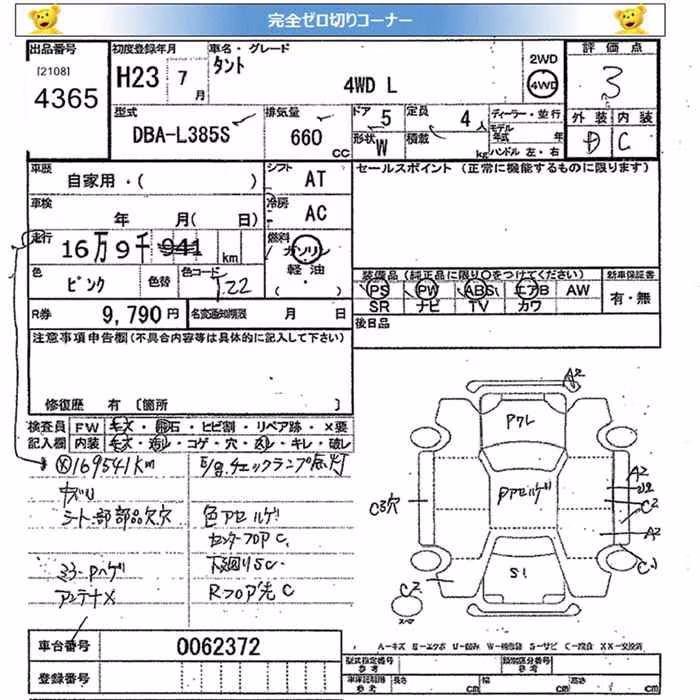 完全ゼロ切りコーナー
出品番号
[2108]
4365
初度登録年月
H23 7月
車名・グレード
タント
4WD L
2WD
4WD
評価点
3
外装 内装
D C
型式
DBA-L385S
排気量
660 CC
ドア
5
形状
W
定員
4人
積載
kg
ディーラー・並行
モデル年式 年
ハンドル 左・右
車歴
自家用・( )
シフト
AT
セールスポイント (正常に機能するものに限ります)
車検
年 月( 日)
冷房
AC
走行
16万9千941km
燃料
ガソリン
軽油
( ・ )
色
ピンク
色替
色コード
T22
装備品 (純正品に限り○をつけてください)
新車保証書
PS PW ABS エアB AW
SR ナビ TV カワ
有・無
R券
9,790円
名変通知期限
月 日
後日品
注意事項申告欄(不具合内容等は具体的に記入して下さい)
修復歴 有 〔箇所 〕
検査員
記入欄
FW キズ・飛石・ヒビ割・リペア跡・×要
内装 キズ・汚れ・コゲ・穴・スレ・キレ・破レ
169541km
E/gチェックランプ点灯
シート一部部品欠穴
色アセルゲ
センターフロアC
ミラーPハゲ
下廻りSC
アンテナX
Rフロア先C
A2
PアL
Pアセルゲ
S1
C3穴
A2
C2
A2
C1
C2
車台番号
0062372
登録番号
A=キズ E=エクボ U=凹み W=補修跡 S=サビ C=腐食 XX=交換済
型式指定番号
参考
類別区分番号
参考
車庫証明用
参考
長さ
cm
幅
cm
高さ
cm